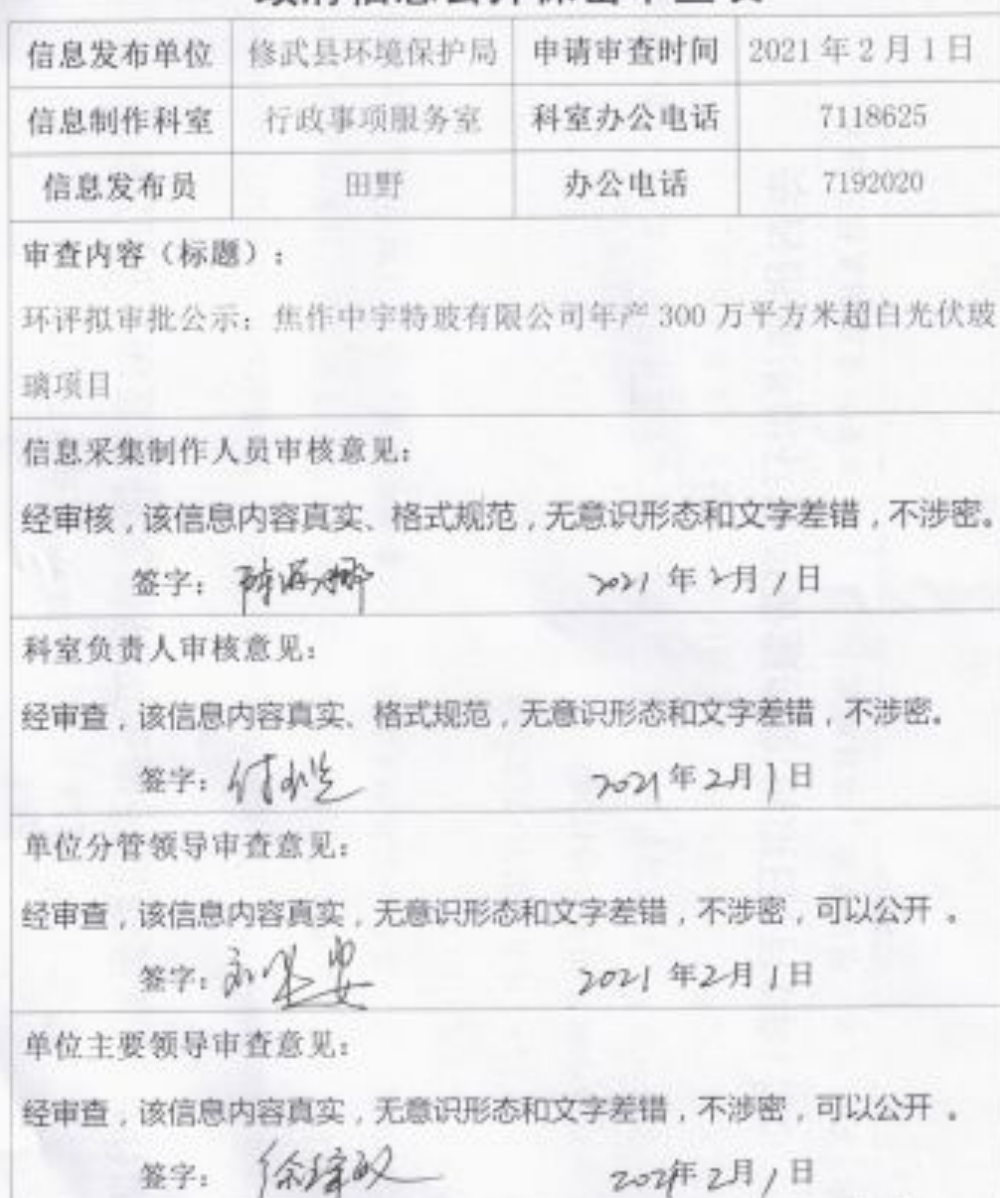 信息发布单位 修武县环境保护局 申请审查时间 2021年2月1日
信息制作科室 行政事项服务室 科室办公电话 7118625
信息发布员 田野 办公电话 7192020
审查内容（标题）：
环评拟审批公示：焦作中宇特玻有限公司年产300万平方米超白光伏玻
璃项目
信息采集制作人员审核意见：
经审核，该信息内容真实、格式规范，无意识形态和文字差错，不涉密。
签字： 2021年2月1日
科室负责人审核意见：
经审查，该信息内容真实、格式规范，无意识形态和文字差错，不涉密。
签字： 2021年2月1日
单位分管领导审查意见：
经审查，该信息内容真实，无意识形态和文字差错，不涉密，可以公开 。
签字： 2021年2月1日
单位主要领导审查意见：
经审查，该信息内容真实，无意识形态和文字差错，不涉密，可以公开 。
签字： 2021年2月1日